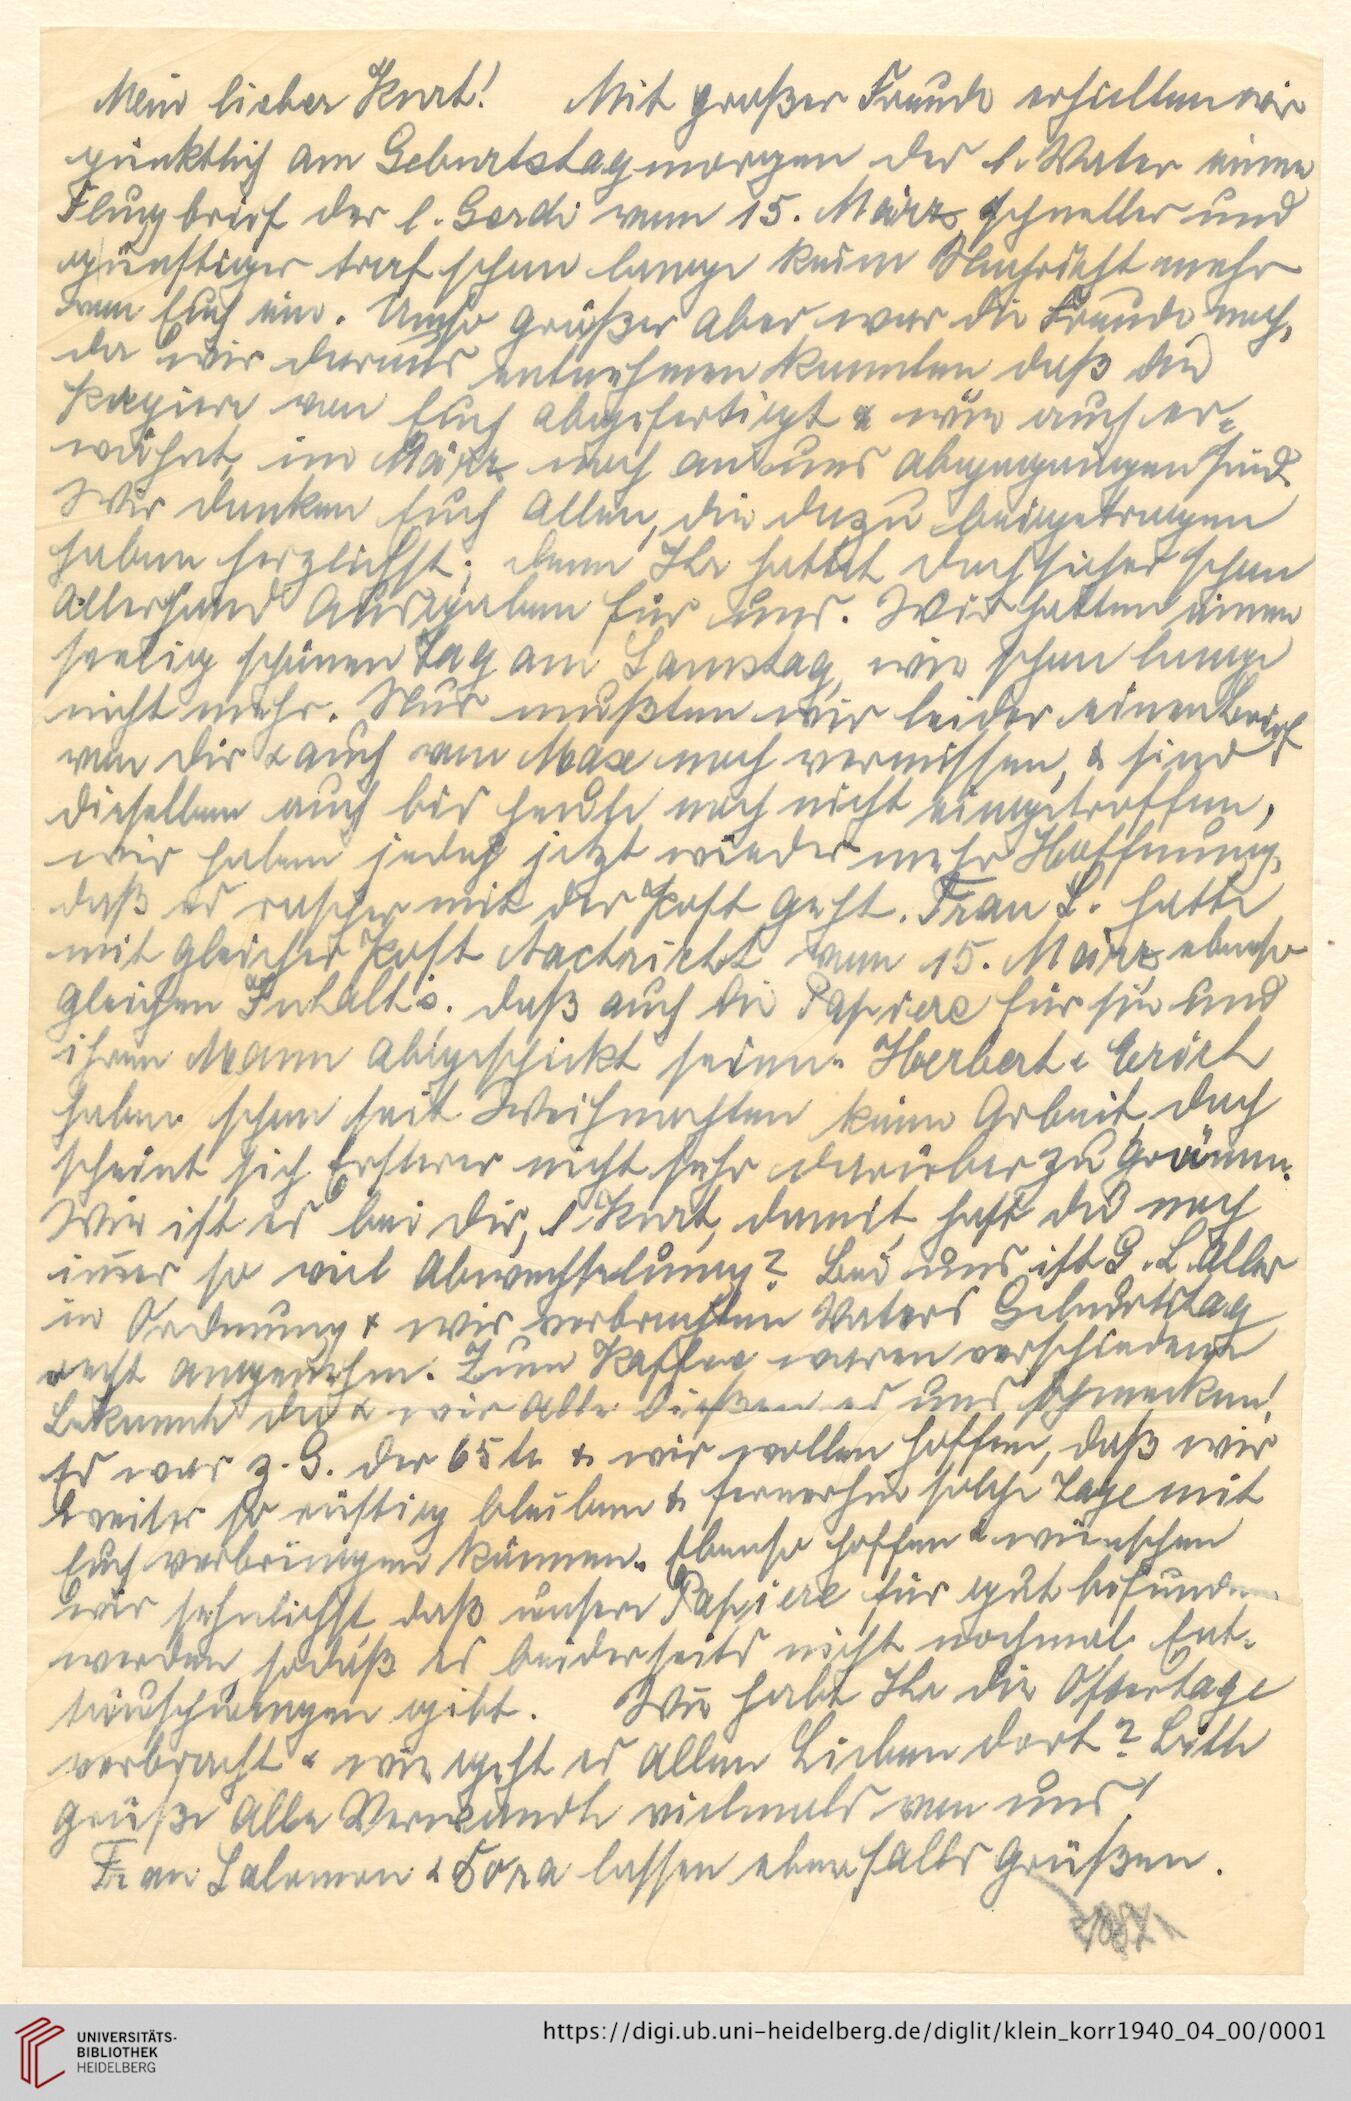 Mein lieber Kurt! Mit großer Freude erhielten wir
pünktlich am Geburtstagmorgen des l. Vater einen
Flugbrief der l. Gerdi vom 15. März, schneller und
günstiger traf schon lange keine Nachricht mehr
von Euch ein. Umso größer aber war die Freude noch,
da wir daraus entnehmen konnten daß die
Papiere von Euch abgefertigt & wie auch er-
wähnt, im März noch an uns abgegangen sind.
Wir danken Euch Allen, die dazu beigetragen
haben herzlichst; denn Ihr hattet doch sicher schon
Allerhand Ausgaben für uns. Wir hatten einen
selig schönen Tag am Samstag, wie schon lange
nicht mehr. Nur mußten wir leider einen Brief
von Dir & auch von Max noch vermissen, & sind
dieselben auch bis heute noch nicht eingetroffen,
wir haben jedoch jetzt wieder mehr Hoffnung,
daß es rascher mit der Post geht. Frau S. hatte
mit gleicher Post Nachricht vom 15. März ebenso
gleichen Inhalts. daß auch die Papiere für sie und
ihren Mann abgeschickt seien. Herbert & Erich
haben schon seit Weihnachten keine Arbeit, doch
scheint sich Ersterer nicht sehr darüber zu grämen.
Wie ist es bei Dir, l. Kurt, damit, hast du noch
immer so viel Abwechselung? Bei uns ist G. L. Alles
in Ordnung & wir verbrachten Vaters Geburtstag
recht angenehm. Zum Kaffee waren verschiedene
Bekannte da & wir Alle ließen es uns schmecken!
Es war z. G. der 65te & wir wollen hoffen, daß wir
weiter so rüstig bleiben & fernerhin solche Tage mit
Euch verbringen können. Ebenso hoffen & wünschen
wir sehnlichst, daß unsere Papiere für gut befunden
werden, sodaß es beiderseits nicht nochmal Ent-
täuschungen gibt. Wie habt Ihr die Ostertage
verbracht & wie geht es allen Lieben dort? Bitte
grüße Alle Verwandte vielmals von uns!
Frau Salomon & Dora lassen ebenfalls grüßen.
UNIVERSITÄTS-
BIBLIOTHEK
HEIDELBERG
https://digi.ub.uni-heidelberg.de/diglit/klein_korr1940_04_00/0001